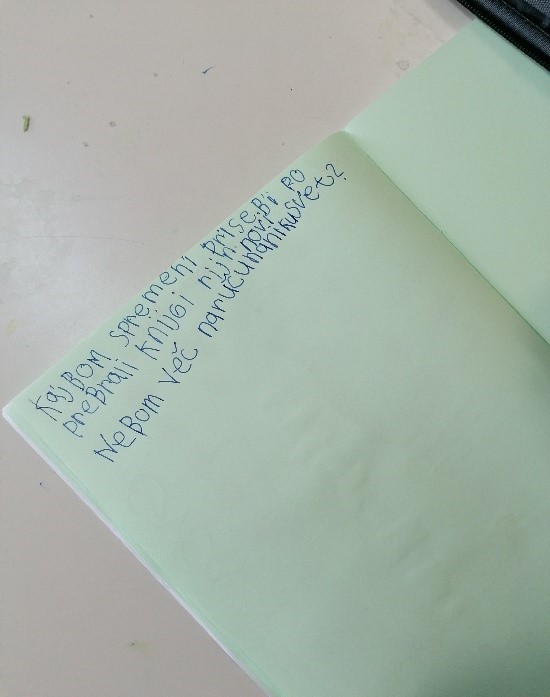 KajBOM spremeni priseBi PO
preBrali knijgi njih novi svet?
NeBOM več naručunaniku